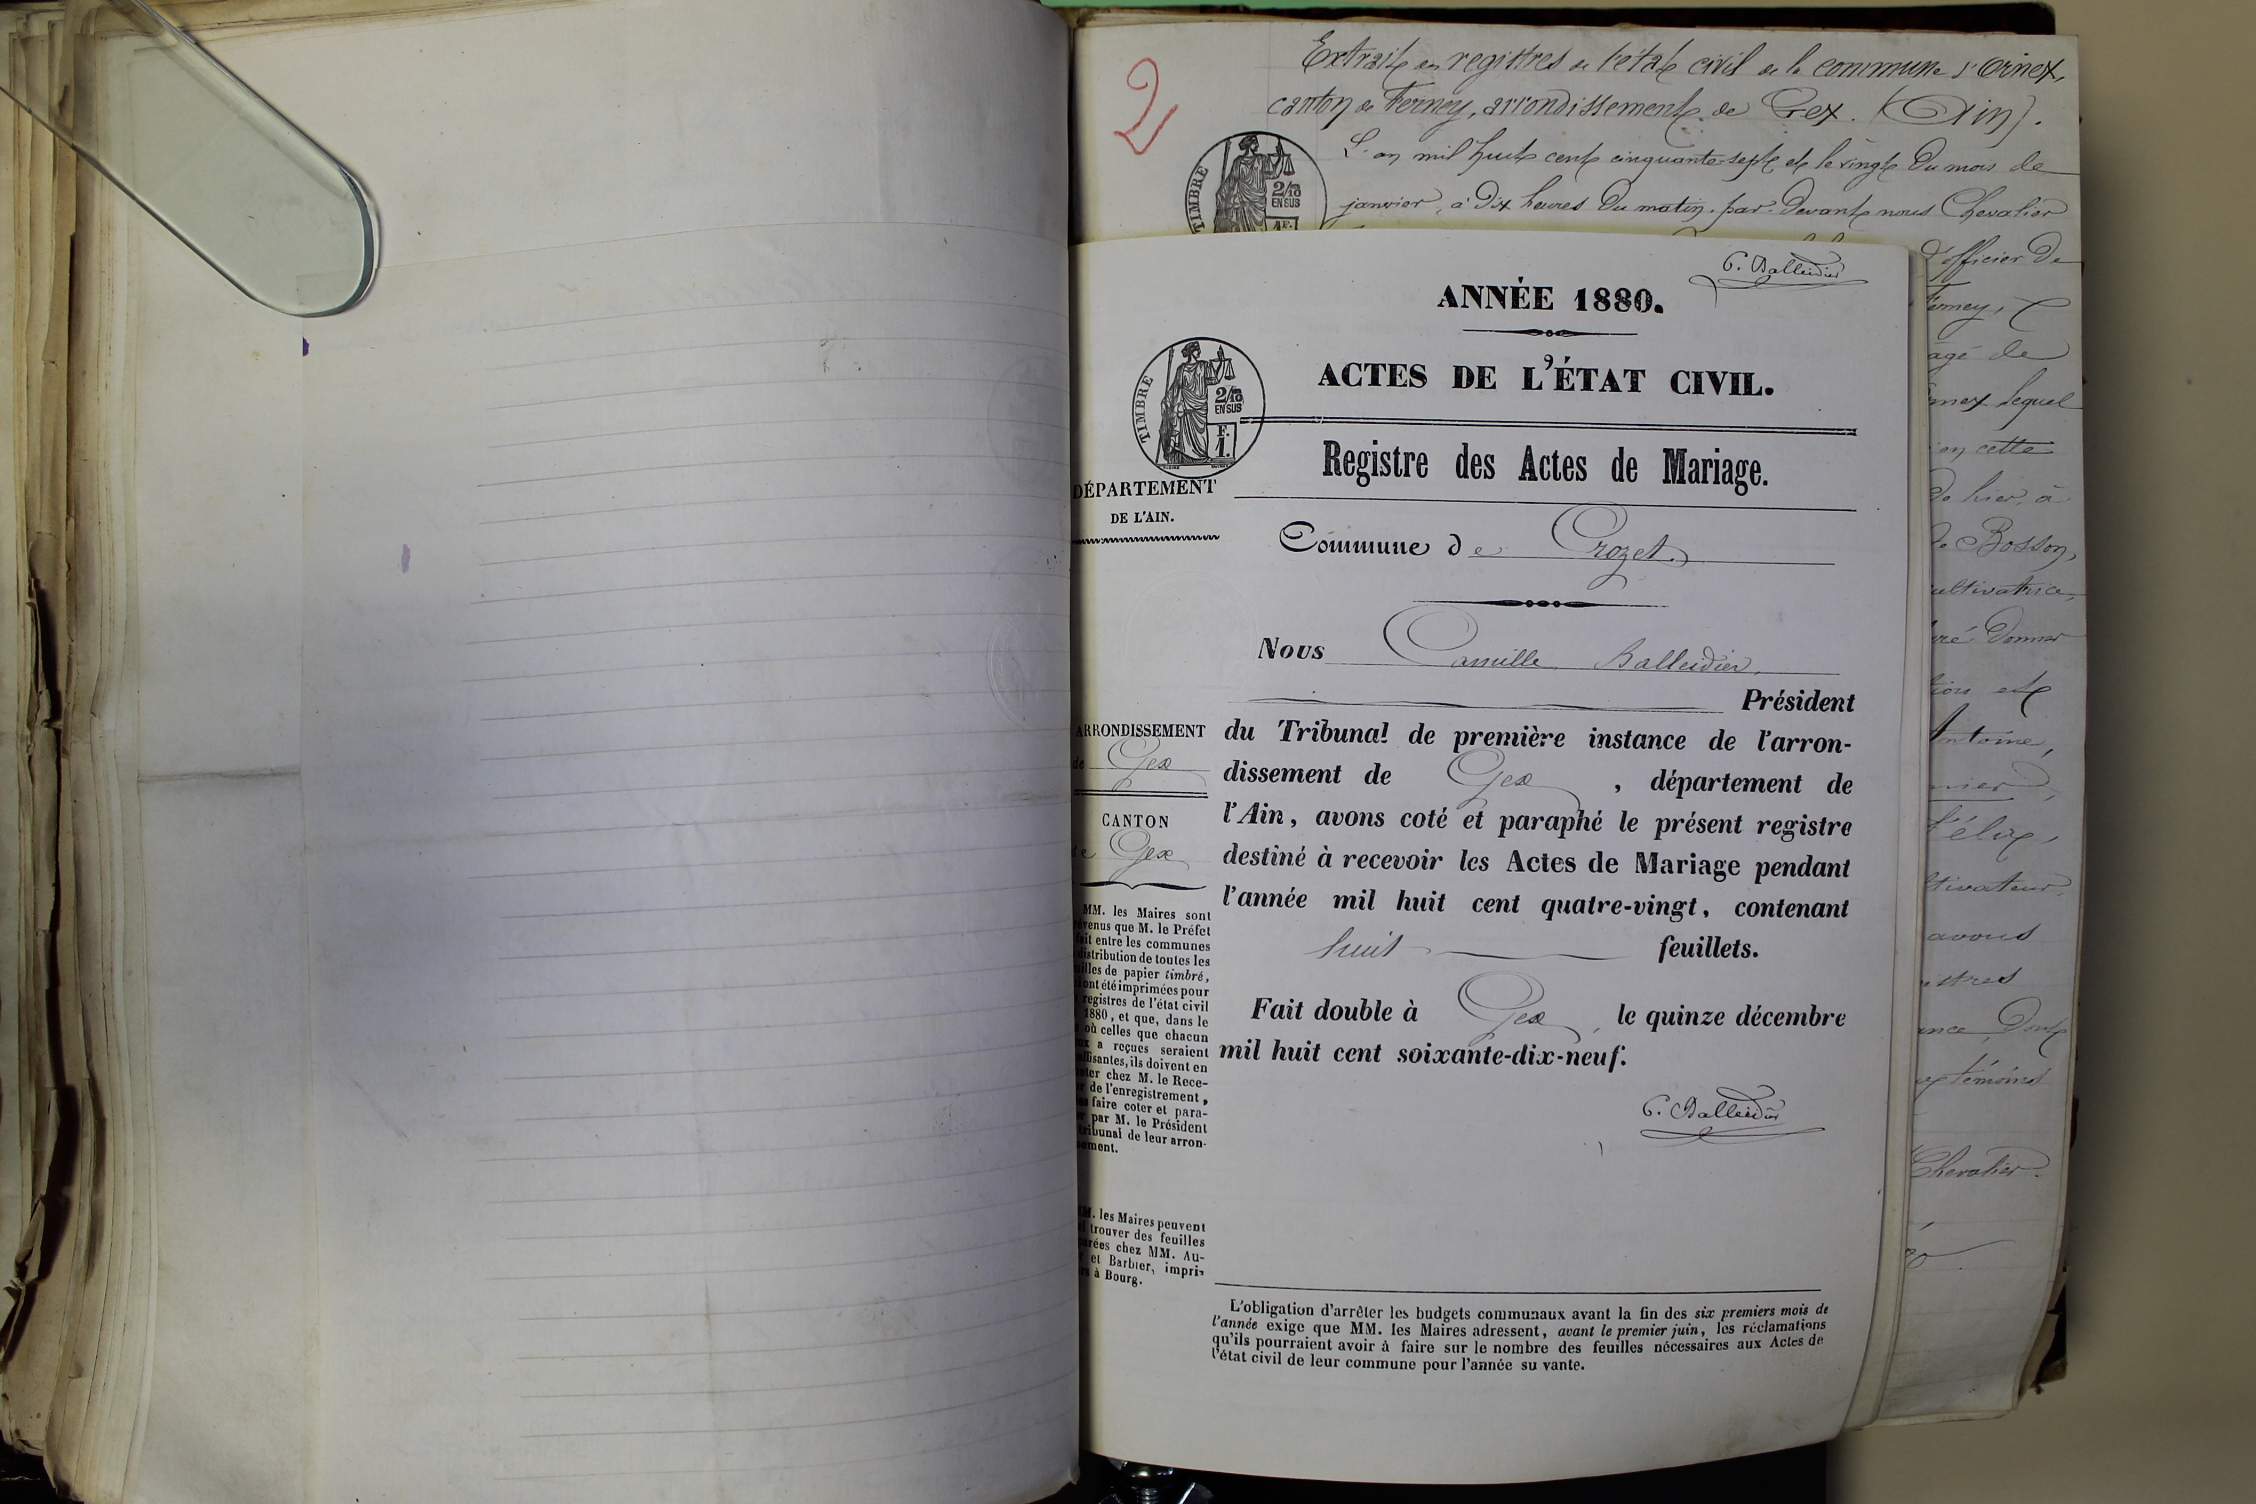 2
Extrait des registres de l'état civil de la commune d'Ornex,
canton de Ferney, arrondissement de Gex. (Ain).
L'an mil huit cent cinquante-sept et le vingt du mois de
janvier, à dix heures du matin, par-devant nous Chevalier
TIMBRE
2/10
EN SUS
1F.
d'officier de
Ferney,
âgé de
lequel
en cette
de hier, à
de Bosson,
cultivatrice,
donner
et
Antoine,
Félix,
cultivateur,
avons
témoins
Chevalier.
C. Balleidier
ANNÉE 1880.
ACTES DE L'ÉTAT CIVIL.
TIMBRE
2/10
EN SUS
F.
1.
Registre des Actes de Mariage.
DÉPARTEMENT
DE L'AIN.
Commune de Crozet
Nous Camille Balleidier,
Président
du Tribunal de première instance de l'arron-
dissement de Gex, département de
l'Ain, avons coté et paraphé le présent registre
destiné à recevoir les Actes de Mariage pendant
l'année mil huit cent quatre-vingt, contenant
huit feuillets.
Fait double à Gex, le quinze décembre
mil huit cent soixante-dix-neuf.
C. Balleidier
ARRONDISSEMENT
de Gex
CANTON
de Gex
MM. les Maires sont
venus que M. le Préfet
fait entre les communes
distribution de toutes les
feuilles de papier timbré,
ont été imprimées pour
registres de l'état civil
1880, et que, dans le
où celles que chacun
a reçues seraient
ils doivent en
chez M. le Rece-
de l'enregistrement,
faire coter et para-
par M. le Président
tribunal de leur arron-
sement.
MM. les Maires peuvent
trouver des feuilles
chez MM. Au-
et Barbier, impri-
à Bourg.
L'obligation d'arrêter les budgets communaux avant la fin des six premiers mois de
l'année exige que MM. les Maires adressent, avant le premier juin, les réclamations
qu'ils pourraient avoir à faire sur le nombre des feuilles nécessaires aux Actes de
l'état civil de leur commune pour l'année su vante.